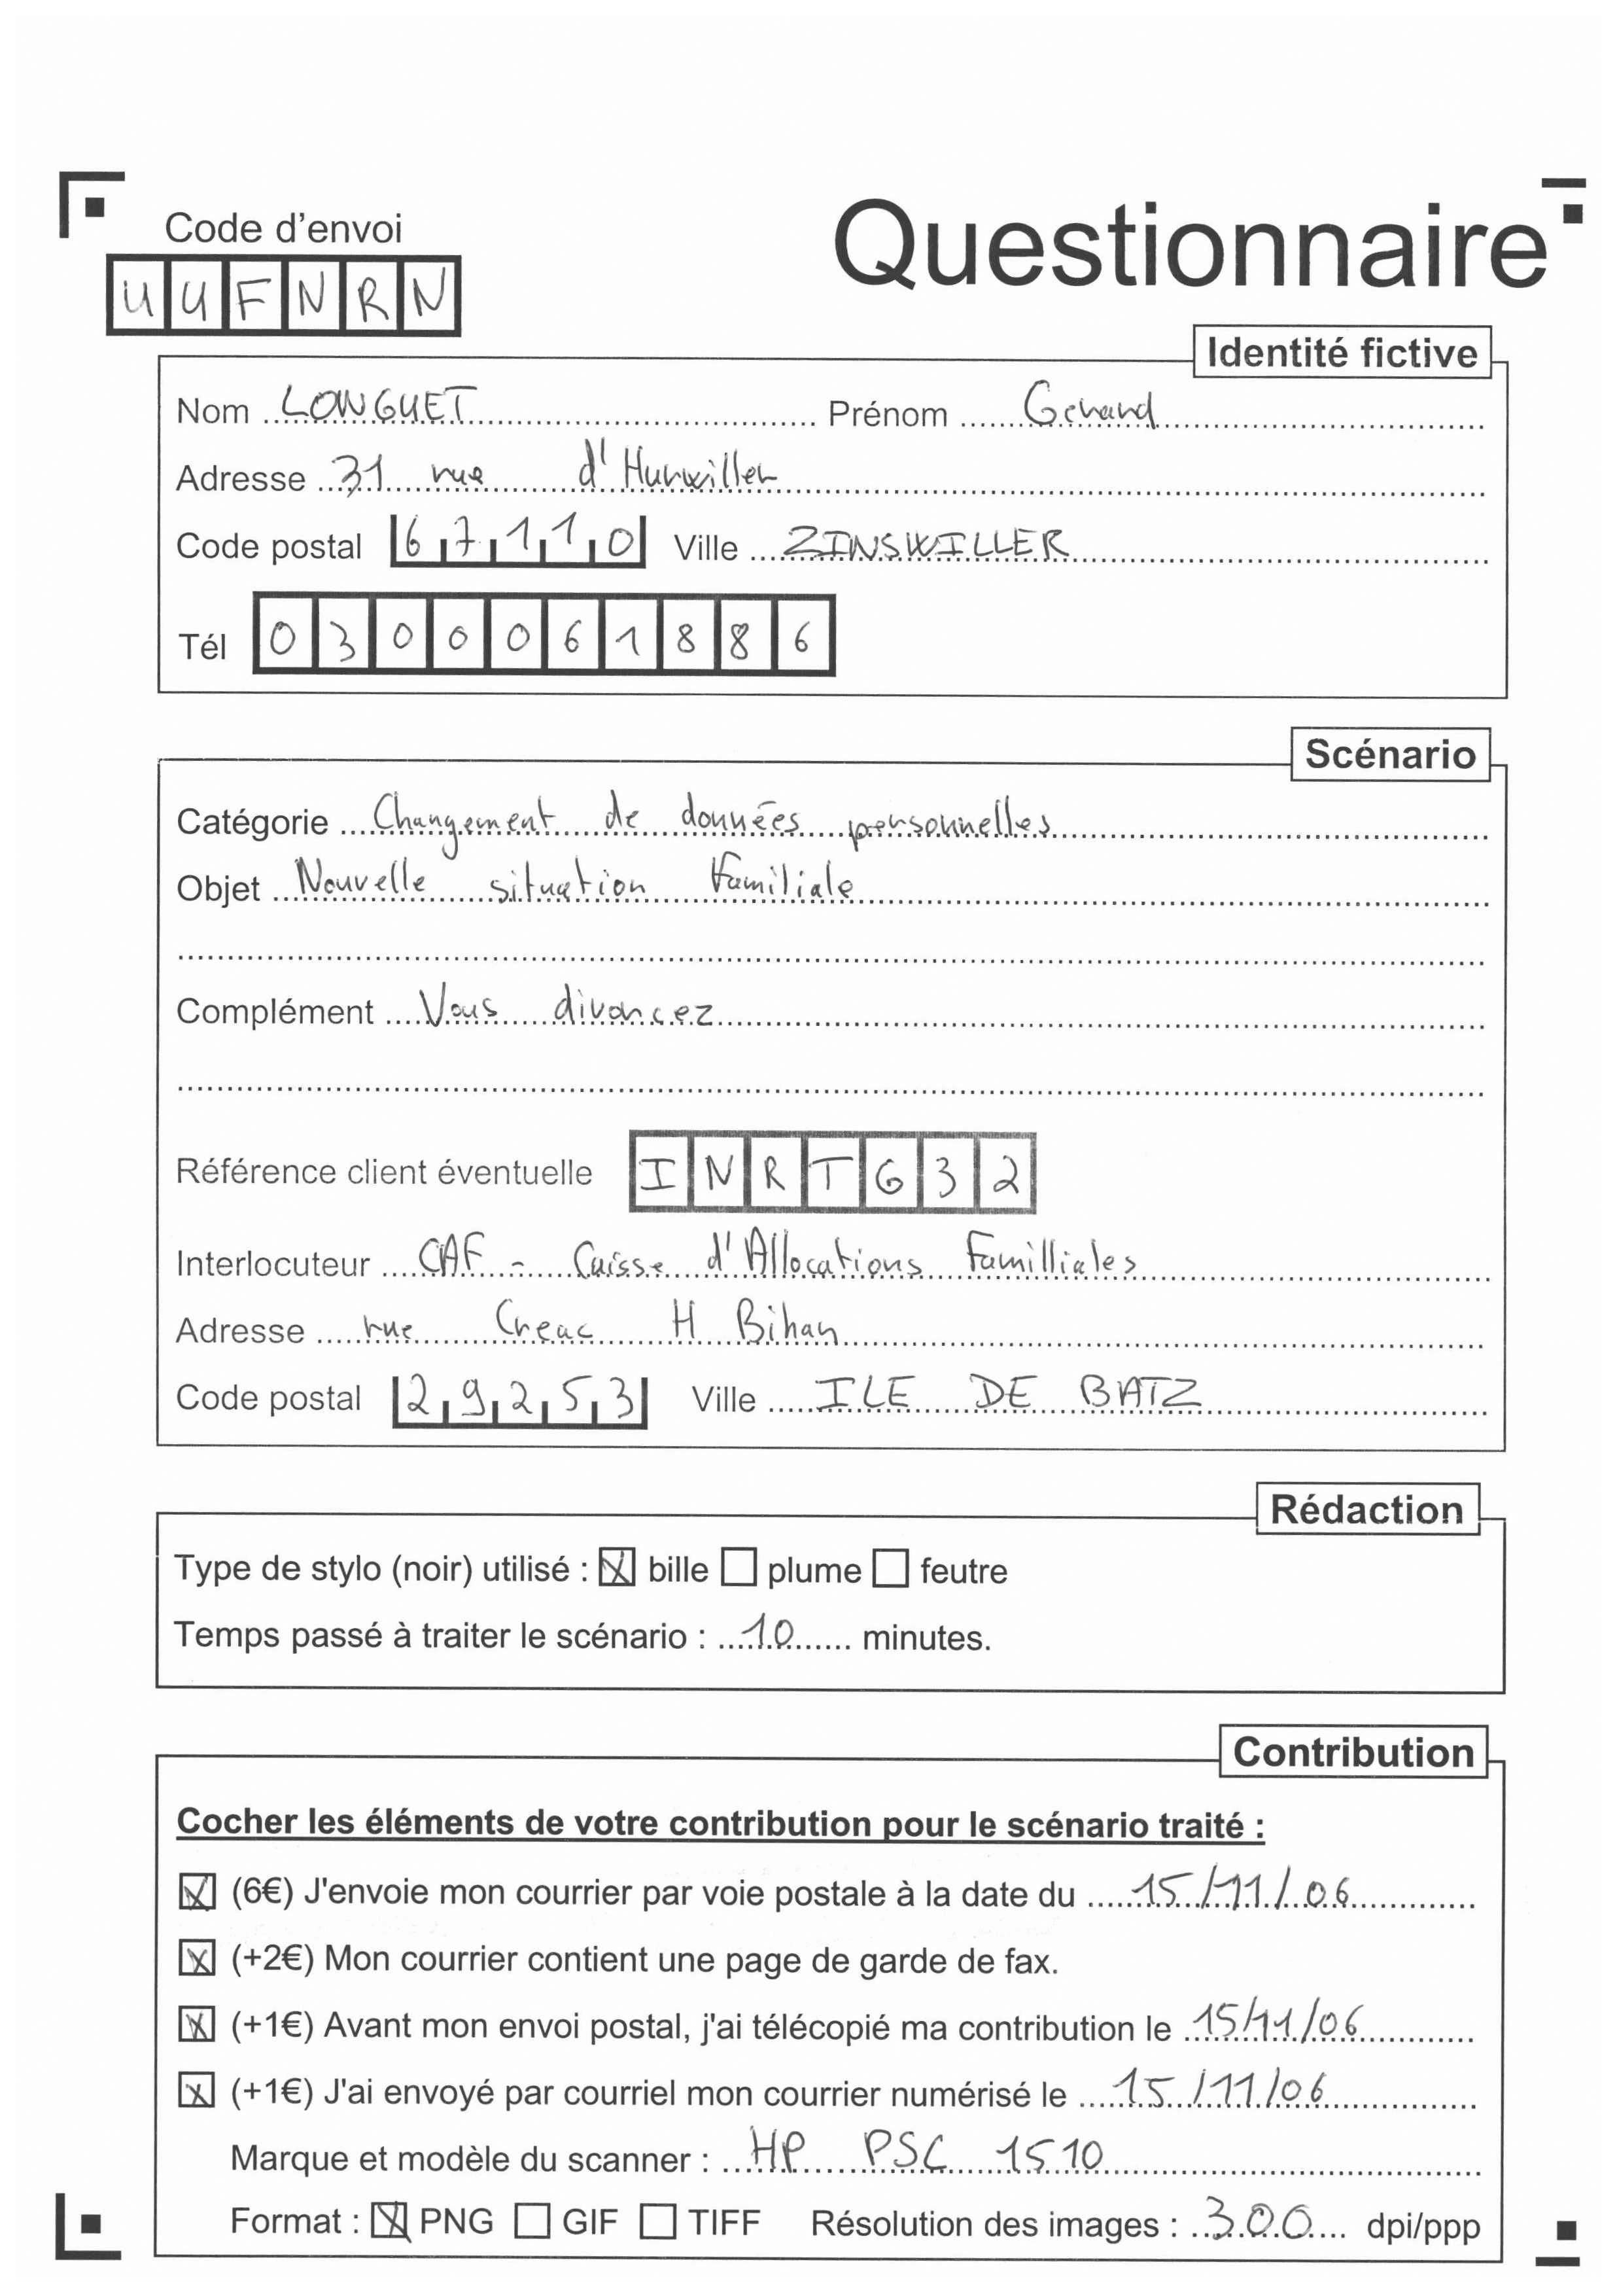 Code d'envoi
Questionnaire
UUFNRN
Identité fictive
Nom LONGUET Prénom Gerard
Adresse 31 rue d'Hunwiller
Code postal 67110 Ville ZINSWILLER
Tél 0300061886
Scénario
Catégorie Changement de données personnelles
Objet Nouvelle situation Familiale
Complément Vous divorcez
Référence client éventuelle INRTG32
Interlocuteur CAF - Caisse d'Allocations Familliales
Adresse rue Creac H Bihan
Code postal 29253 Ville ILE DE BATZ
Rédaction
Type de stylo (noir) utilisé : ☒ bille ☐ plume ☐ feutre
Temps passé à traiter le scénario : 10 minutes.
Contribution
Cocher les éléments de votre contribution pour le scénario traité :
☒ (6€) J'envoie mon courrier par voie postale à la date du 15/11/06
☒ (+2€) Mon courrier contient une page de garde de fax.
☒ (+1€) Avant mon envoi postal, j'ai télécopié ma contribution le 15/11/06
☒ (+1€) J'ai envoyé par courriel mon courrier numérisé le 15/11/06
Marque et modèle du scanner : HP PSC 1510
Format : ☒ PNG ☐ GIF ☐ TIFF Résolution des images : 300 dpi/ppp